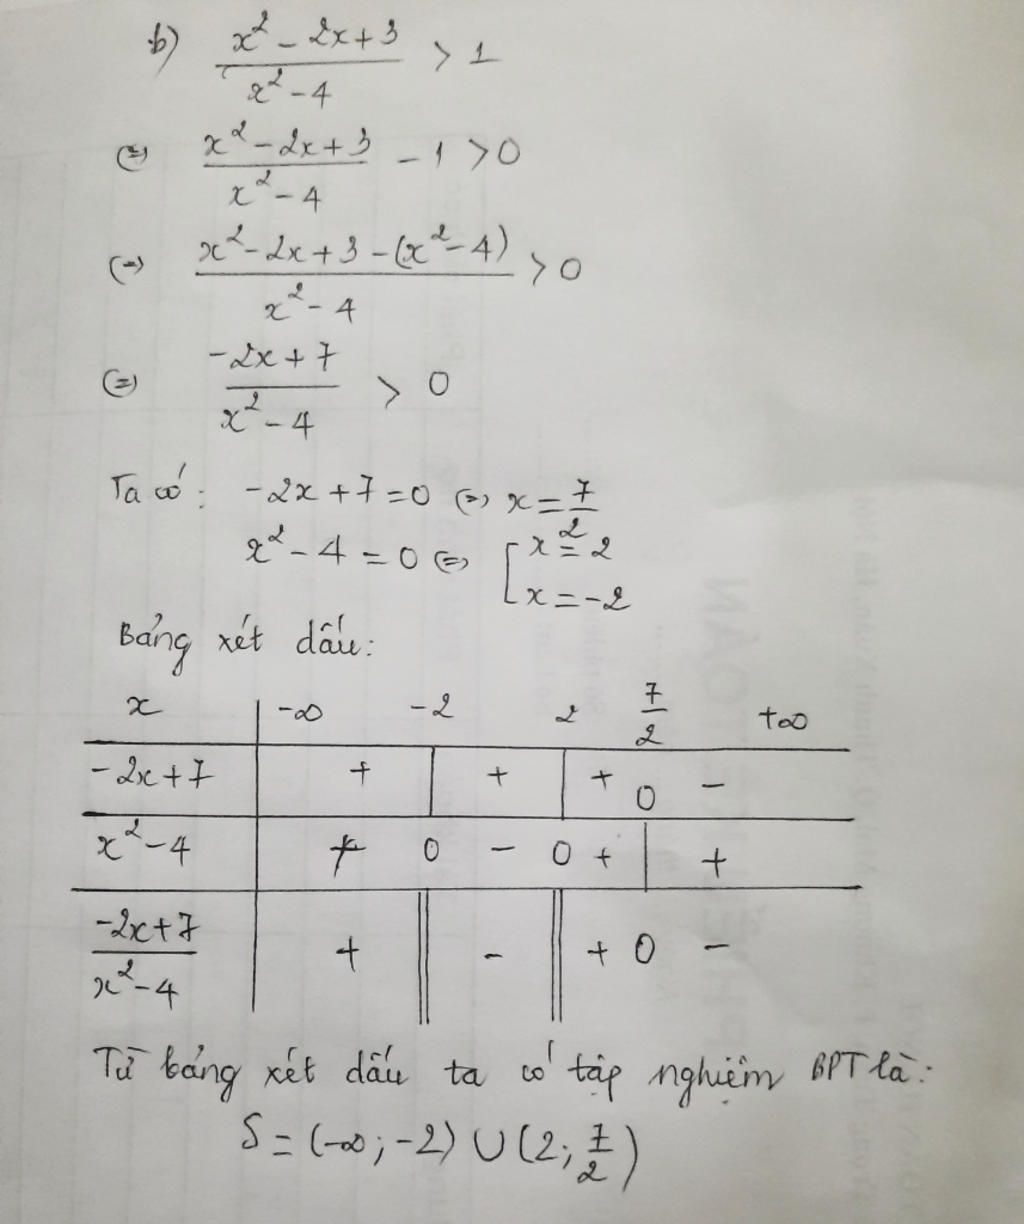 b) (x² - 2x + 3)/(x² - 4) > 1
(=) (x² - 2x + 3)/(x² - 4) - 1 > 0
(=) (x² - 2x + 3 - (x² - 4))/(x² - 4) > 0
(=) (-2x + 7)/(x² - 4) > 0
Ta có: -2x + 7 = 0 (=) x = 7/2
x² - 4 = 0 (=) [ x = 2
x = -2
Bảng xét dấu:
x | -∞ -2 2 7/2 +∞
-2x + 7 | + | + | + 0 -
x² - 4 | + 0 - 0 + | +
(-2x + 7)/(x² - 4) | + || - || + 0 -
Từ bảng xét dấu ta có tập nghiệm BPT là:
S = (-∞; -2) ∪ (2; 7/2)